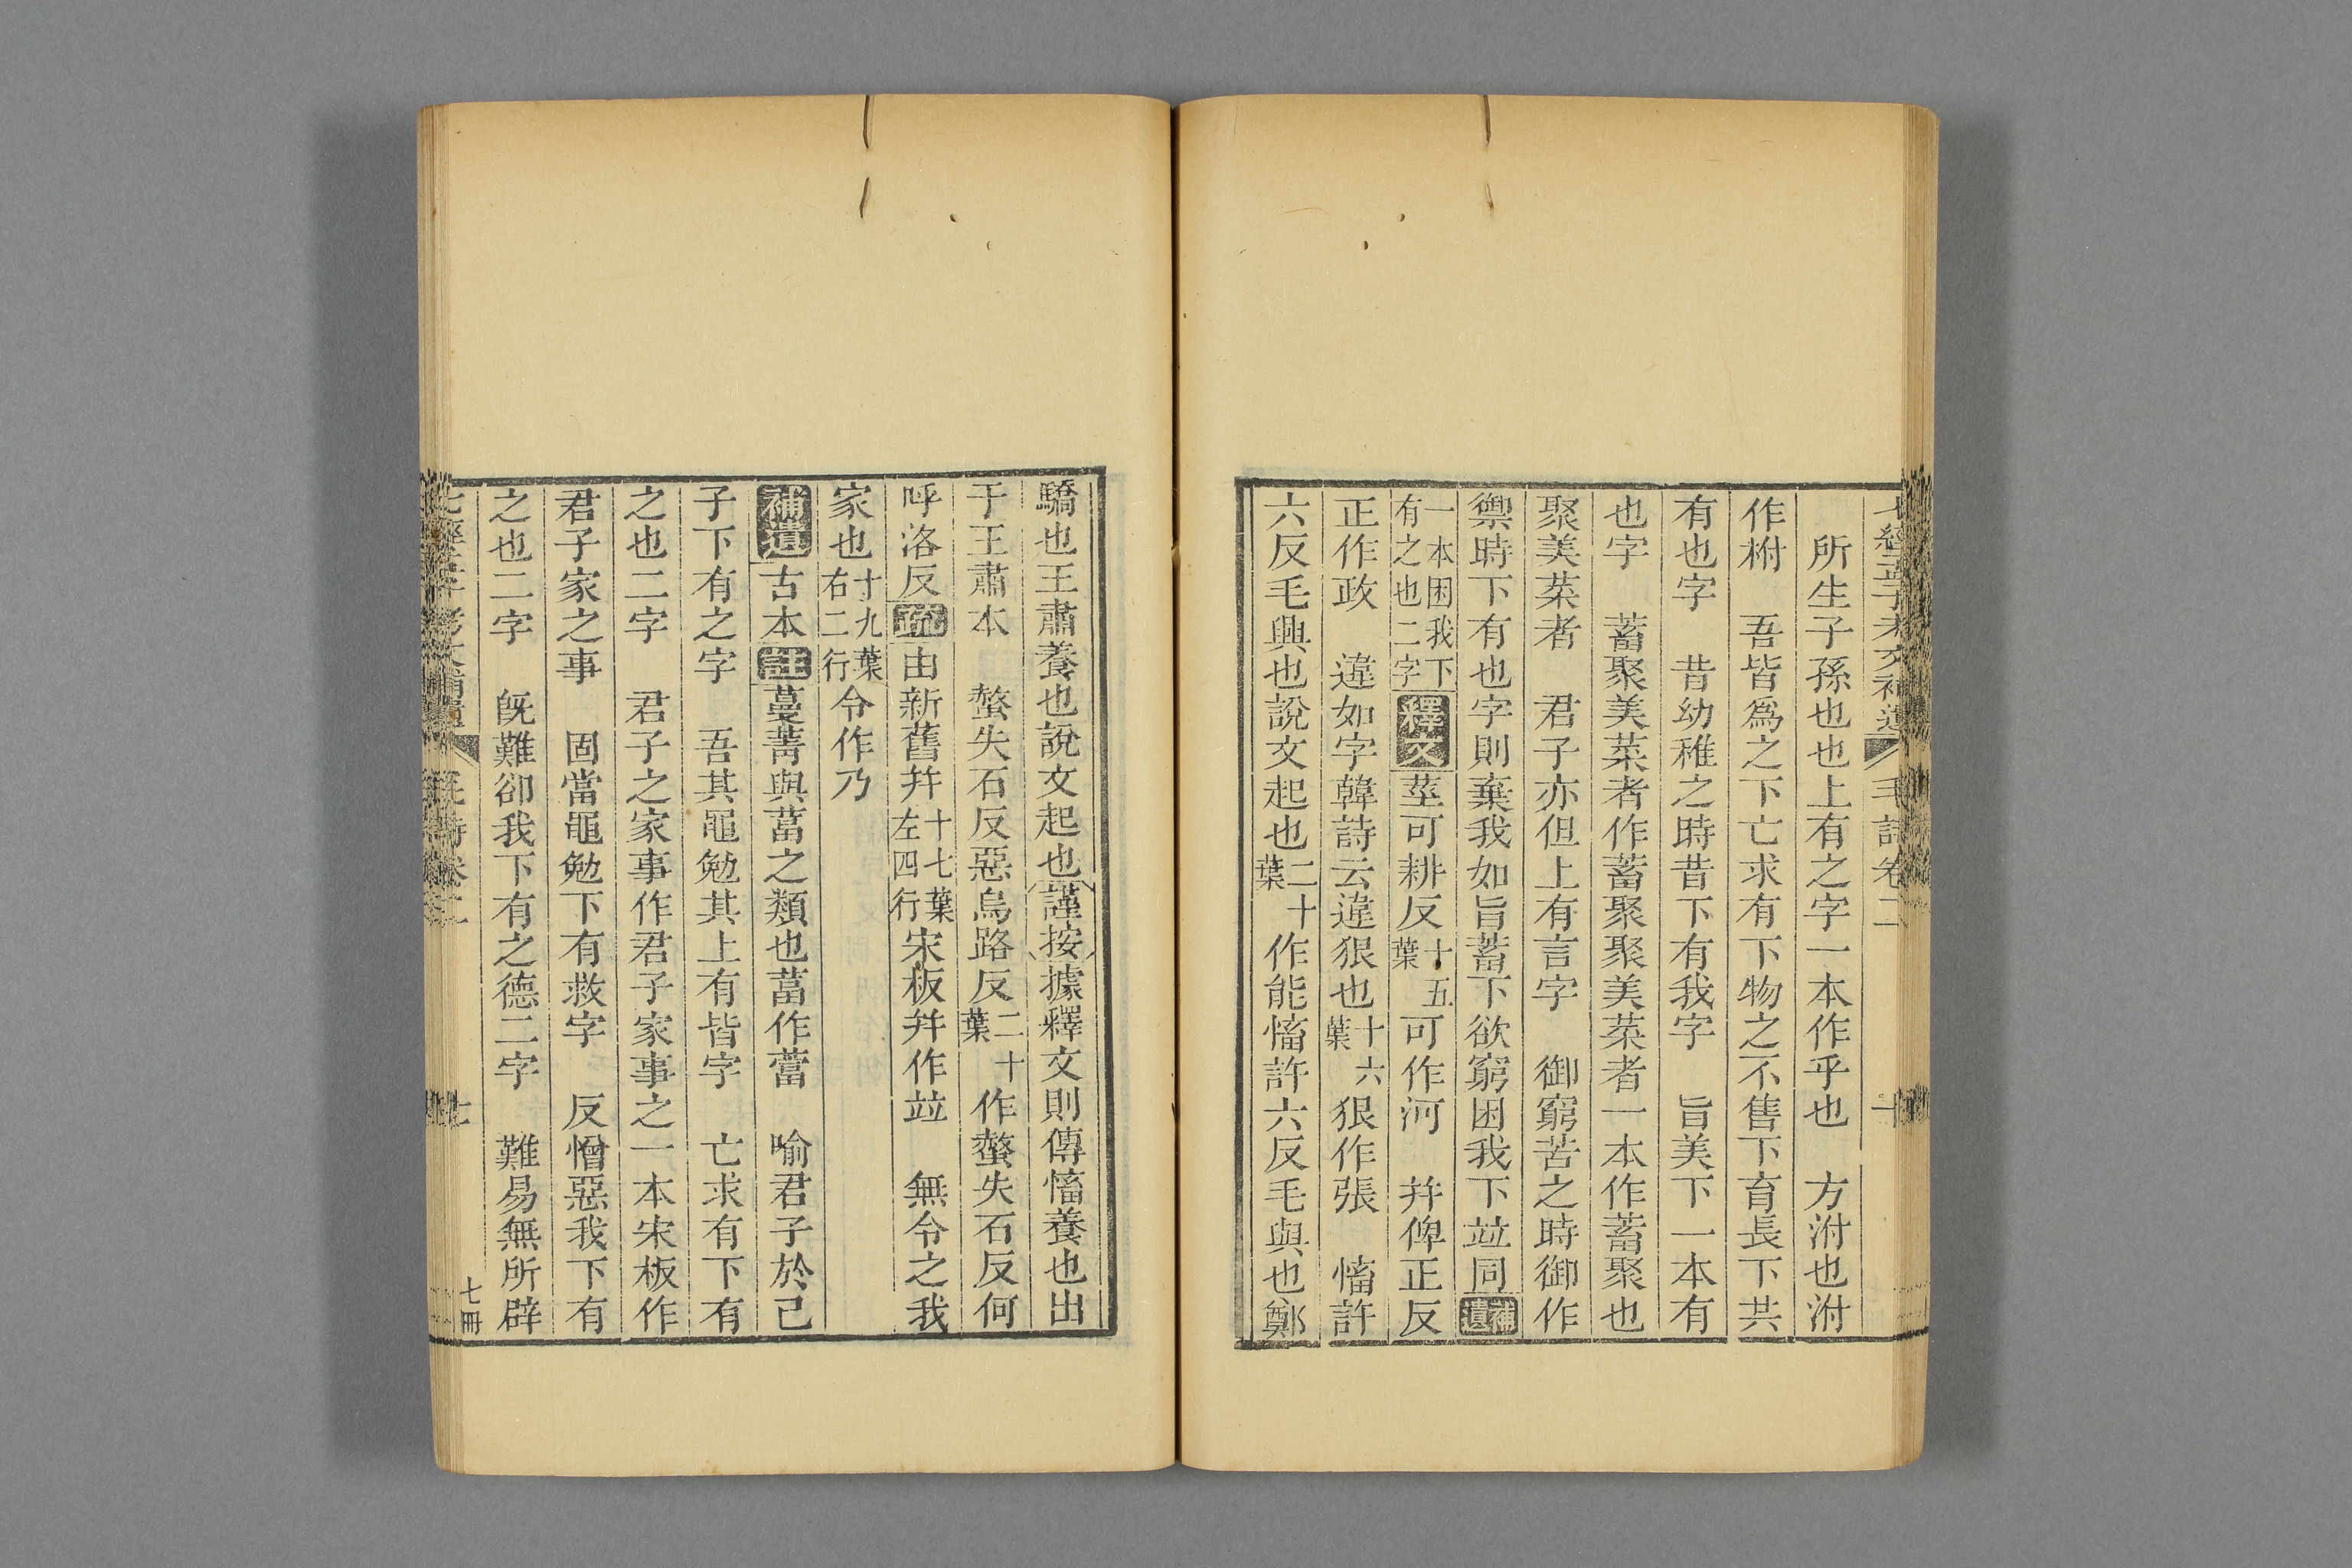 七經孟子考文補遺 毛詩卷二
所生子孫也也上有之字一本作乎也 方泭也泭
作柎 吾皆爲之下亡求有下物之不售下育長下共
有也字 昔幼稚之時昔下有我字 旨美下一本有
也字 蓄聚美菜者作蓄聚聚美菜者一本作蓄聚也
聚美菜者 君子亦但上有言字 御窮苦之時御作
禦時下有也字則棄我如旨蓄下欲窮困我下竝同補遺
一本困我下有之也二字釋文莖可耕反十五葉可作河 幷俾正反
正作政 違如字韓詩云違狠也十六葉狠作張 慉許
六反毛興也說文起也二十葉作能慉許六反毛與也鄭
驕也王肅養也說文起也謹按據釋文則傳慉養也出
于王肅本 螫失石反惡烏路反二十葉作螫失石反何
呼洛反疏由新舊幷十七葉左四行宋板幷作竝 無令之我
家也十九葉右二行令作乃
補遺古本註蔓菁與葍之類也葍作蕾 喻君子於己
子下有之字 吾其黽勉其上有皆字 亡求有下有
之也二字 君子之家事作君子家事之一本宋板作
君子家之事 固當黽勉下有救字 反憎惡我下有
之也二字 旣難卻我下有之德二字 難易無所辟
七冊